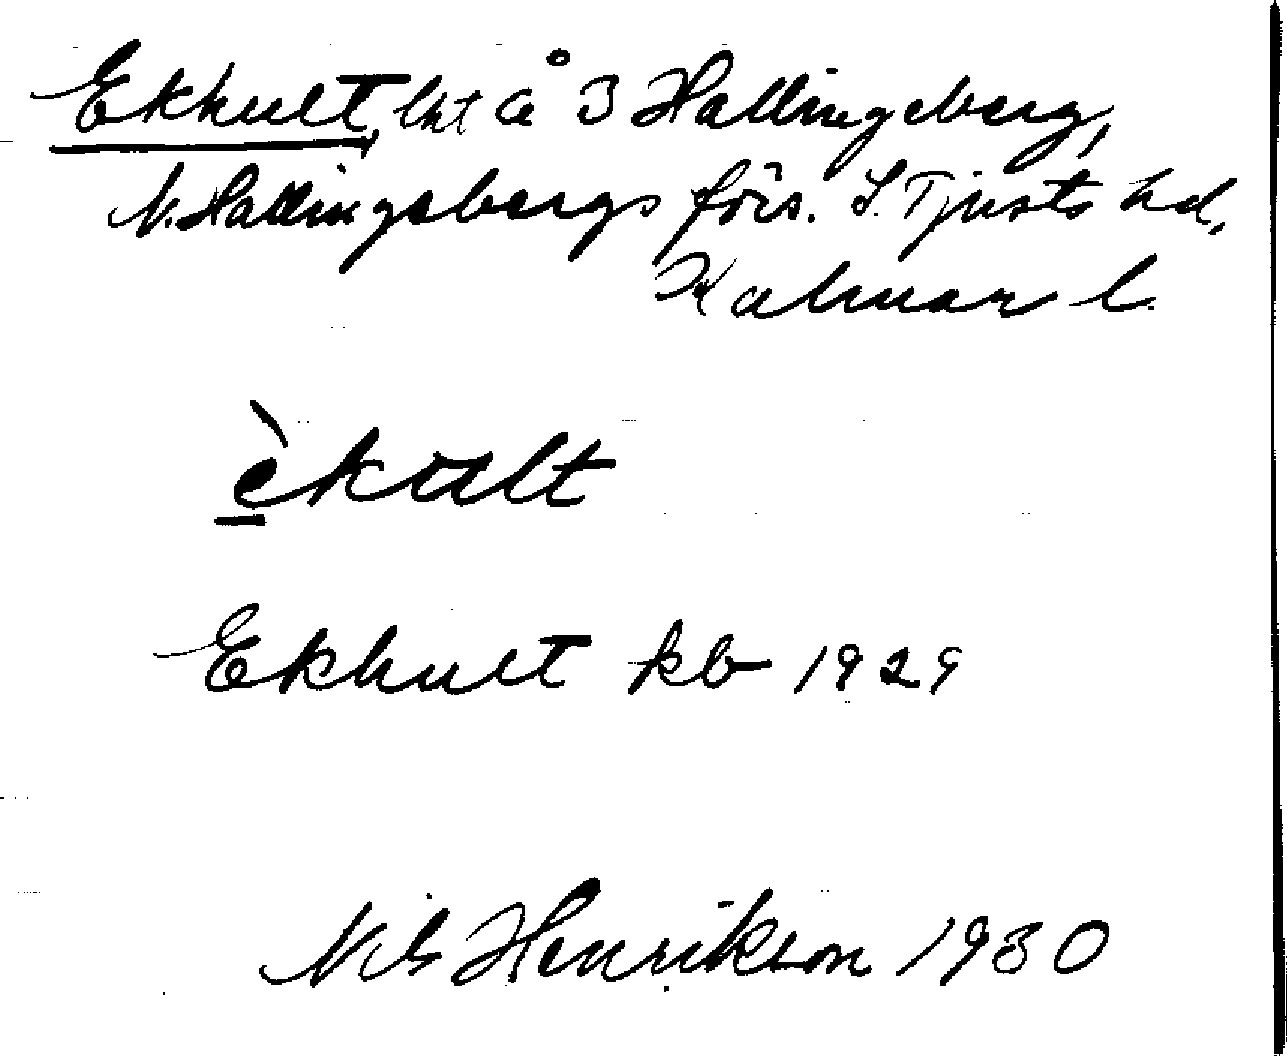 Ekhult, lht å 3 Hallingeberg,
N. Hallingebergs förs. S. Tjusts hd,
Kalmar l.
èkult
Ekhult kb 1929
Nils Henrikson 1930